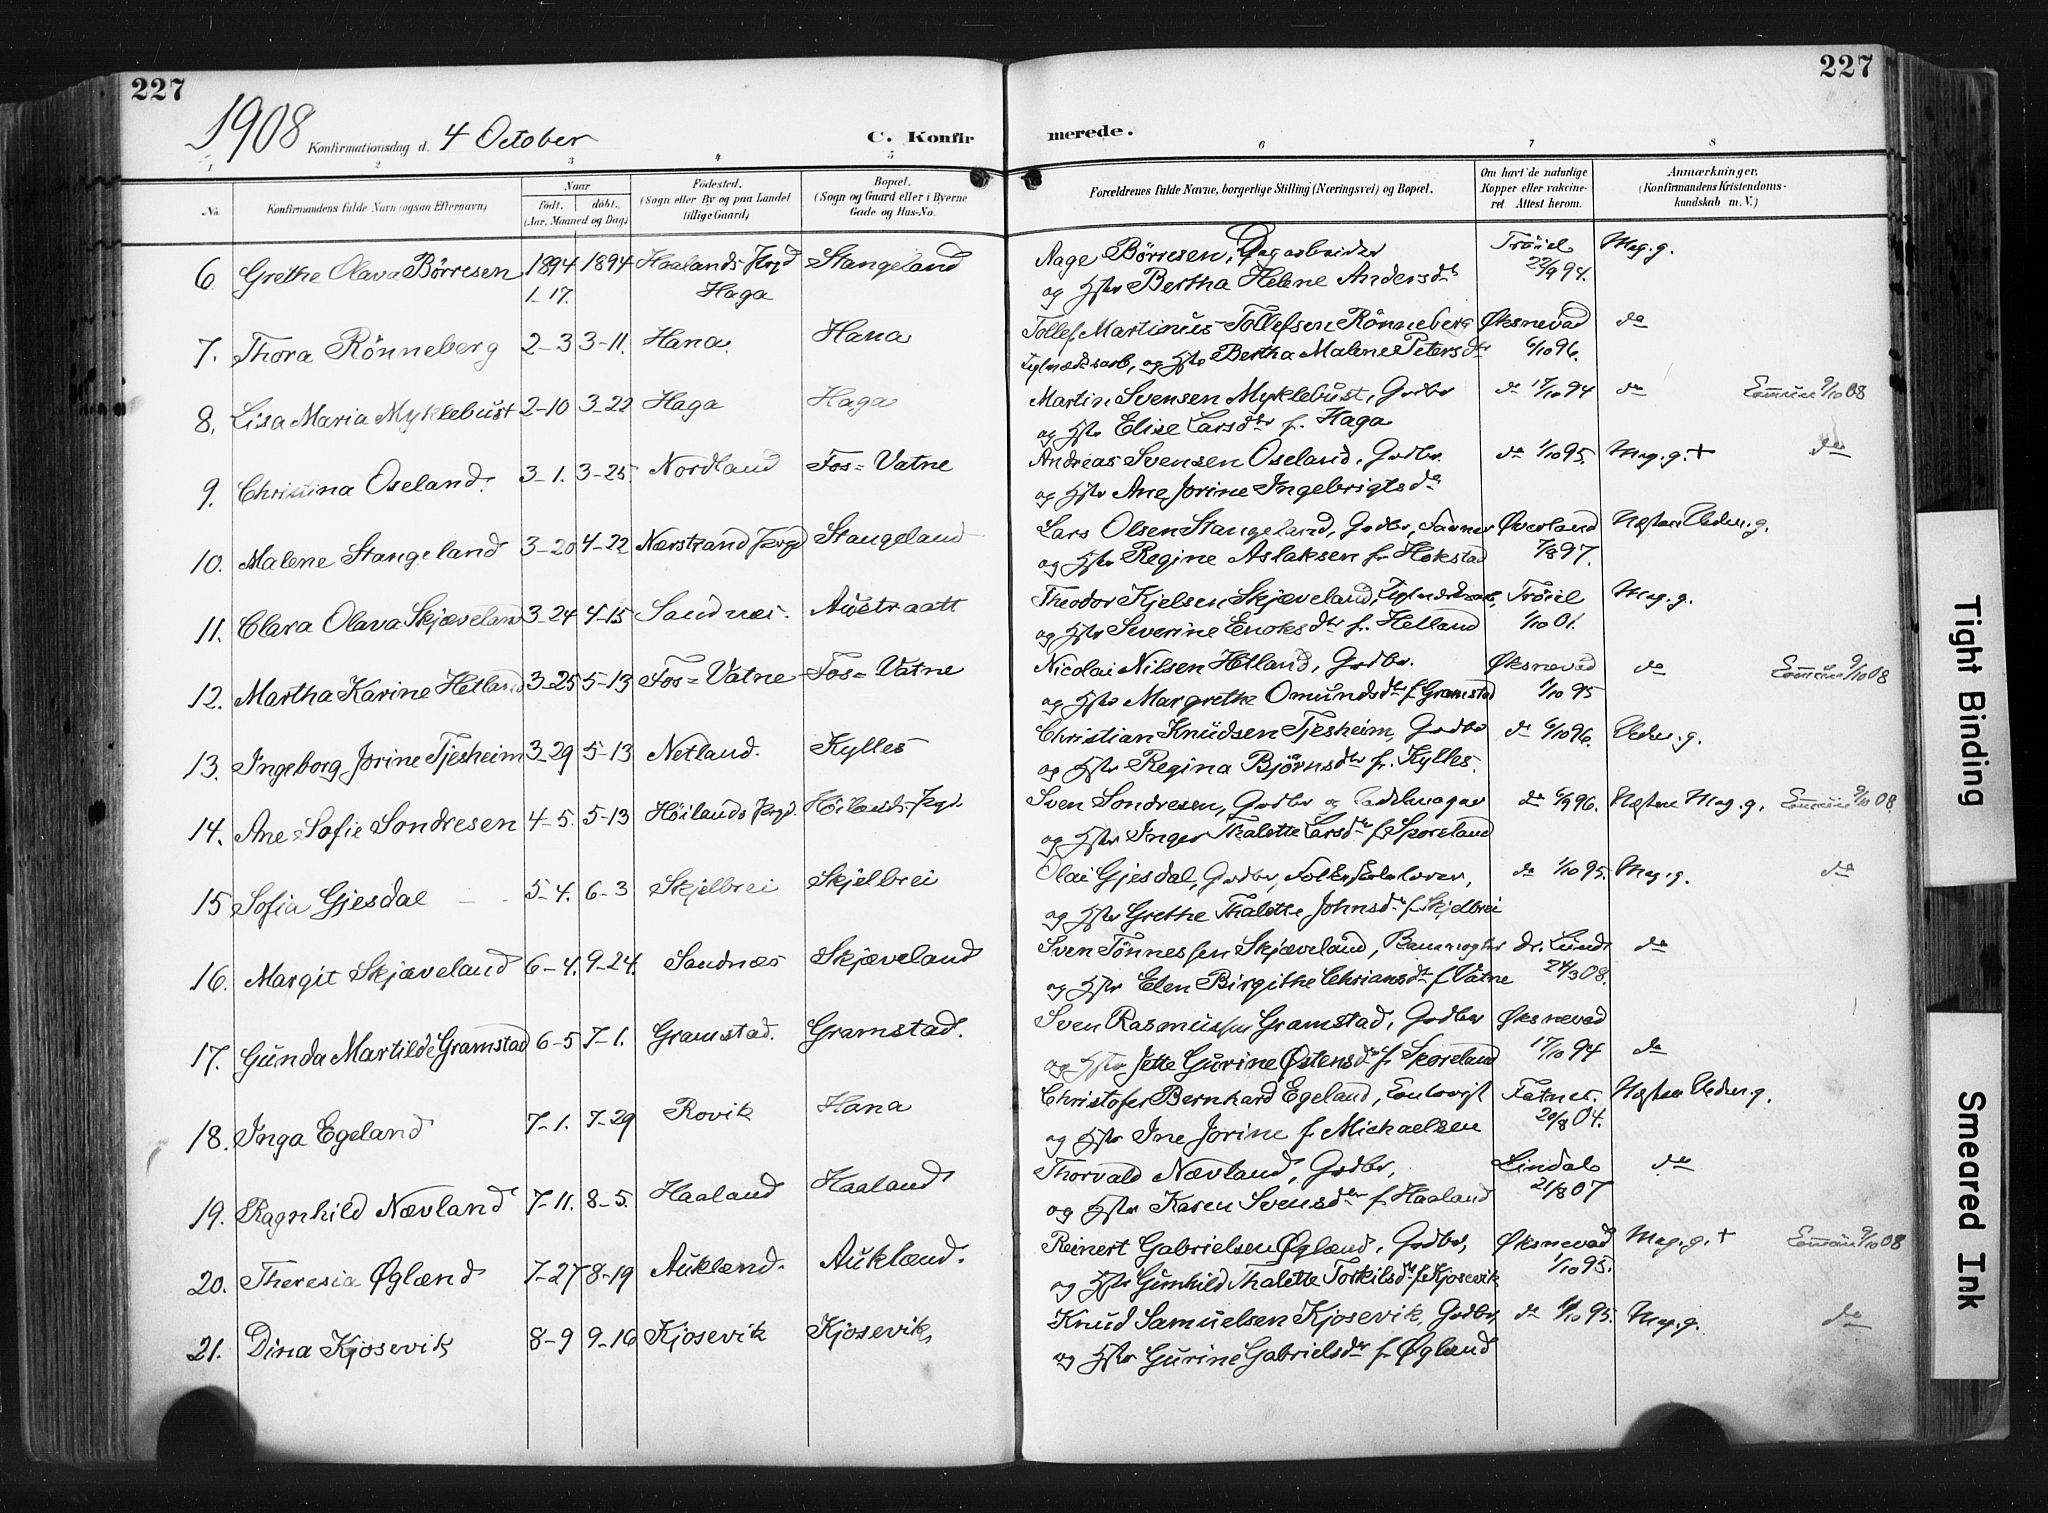 227
227
1908 Konfirmationsdag d. 4 October
C. Konfirmerede.
1 2 3 4 5 6 7 8
No. Konfirmandens fulde Navn (ogsaa Efternavn) Naar Födt. döbt. (Aar, Maaned og Dag) Födested. (Sogn eller By og paa Landet tillige Gaard) Bopæl. (Sogn og Gaard eller i Byerne Gade og Hus-No. Forældrenes fulde Navne, borgerlige Stilling (Næringsvei) og Bopæl. Om havt de naturlige Kopper eller vakcineret. Attest herom. Anmærkninger. (Konfirmandens Kristendomskundskab m. V.)
6. Grethe Olava Börresen 1894 1-17. 1894 Haalands Prgd Haga Stangeland Aage Börresen, Dagarbeider Tröiel 22/9 94. Meg. g.
og Hstr Bertha Helene Andersdtr
7. Thora Rönneberg 2-3 3-11. Hana. Hana Tollef Martinus Tollefsen Rönneberg Øksnevad 6/10 96. do
og Hstr Bertha Malene Petersdtr
8. Lisa Maria Myklebust 2-10 3-22 Haga Haga Martin Svensen Myklebust, Grdbr do 17/10 94 do 9/10 08
og Hstr Elise Larsdtr f. Haga
9. Christina Oseland. 3-1. 3-25. Nordland Fos=Vatne Andreas Svensen Oseland, Grdbr. do 1/10 95. Meg. g. + do
og Hstr Ane Jorine Ingebrigtsdtr
10. Malene Stangeland 3-20 4-22 Nærstrand Prgd Stangeland Lars Olsen Stangeland, Grdbr, Øverland 7/8 97. Næsten Udm. g.
og Hstr Regine Aslaksen f. Hokstad
11. Clara Olava Skjæveland 3-24 4-15 Sandnæs. Austraatt Theodor Kjelsen Skjæveland, Tröiel 1/10 01. Meg. g.
og Hstr Severine Enoksdtr f. Helland
12. Martha Karine Hetland 3-25 5-13 Fos=Vatne Fos=Vatne Nicolai Nilsen Hetland, Grdbr. Øksnevad 1/10 95 do 9/10 08
og Hstr Margrethe Omundsdtr f. Gramstad
13. Ingeborg Jorine Tjesheim 3-29 5-13 Netland. Kylles Christian Knudsen Tjesheim, Grdbr do 6/10 96. Udm. g.
og Hstr Regina Bjørnsdtr f. Kylles.
14. Ane Sofie Sondresen 4-5. 5-13 Höilands Prgd. Höilands Prgd. Sven Sondresen, Grdbr og Sadelmager do 6/9 96. Næsten Meg. g. 9/10 08
og Hstr Inger Thalette Larsdtr f. Skoreland
15 Sofia Gjesdal 5-4. 6-3 Skjelbrei Skjelbrei Olai Gjesdal, Grdbr, Folkeskolelærer, do 1/10 95. Meg. g. do
og Hstr Grethe Thalette Johnsdtr f. Skjelbrei
16. Margit Skjæveland 6-4. 9-24. Sandnæs Skjæveland Sven Tönnessen Skjæveland, Banevogter dr. Lund 24/3 08. do
og Hstr Elen Birgithe Chriansdtr f. Vatne
17. Gunda Martilde Gramstad 6-5 7-1. Gramstad. Gramstad. Sven Rasmussen Gramstad, Grdbr Øksnevad 17/10 94 do
og Hstr Jette Gurine Østensdtr f. Skoreland
18. Inga Egeland 7-1. 7-29 Rovik Hana Christofer Bernhard Egeland, 20/8 04. Næsten Udm. g.
og Hstr Ine Jorine f. Michaelsen
19. Ragnhild Nævland 7-11. 8-5. Haaland Haaland Thorvald Nævland, Grdbr, Lindal 21/8 07 do
og Hstr Karen Svensdtr f. Haaland
20. Theresia Øglænd 7-27 8-19 Auklænd. Auklænd. Reinert Gabrielsen Øglænd, Grdbr, Øksnevad 1/10 95. Meg. g. + 9/10 08
og Hstr Gunhild Thalette Torkilsdtr f. Kjosevik
21. Dina Kjosevik 8-9 9-16 Kjosevik Kjosevik, Knud Samuelsen Kjosevik, Grdbr, do 1/10 95. Meg. g. do
og Hstr Gurine Gabrielsdtr f. Øglænd
Tight Binding
Smeared Ink